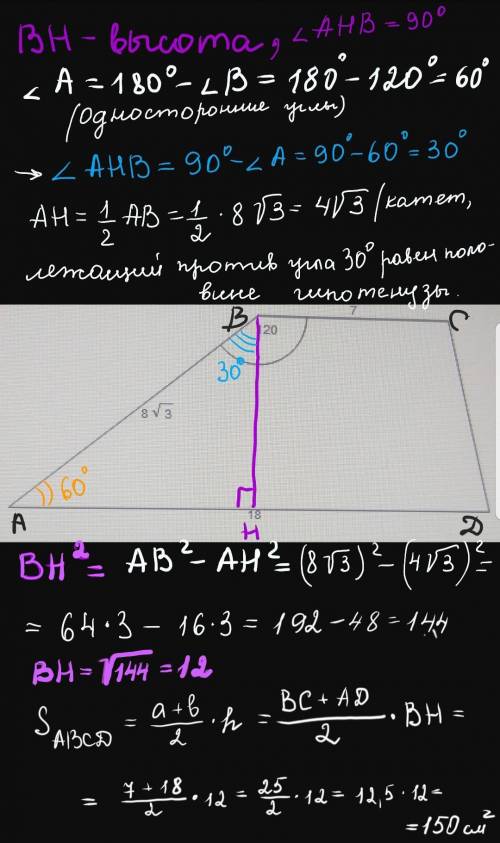 BH - высота, ∠AHB = 90°
∠A = 180° - ∠B = 180° - 120° = 60°
(односторонние углы)
→ ∠AHB = 90° - ∠A = 90° - 60° = 30°
AH = 1/2 AB = 1/2 · 8√3 = 4√3 (катет,
лежащий против угла 30° равен поло-
вине гипотенузы.
B 7 C
20
30°
8√3
60°
A 18 D
H
BH² = AB² - AH² = (8√3)² - (4√3)² =
= 64·3 - 16·3 = 192 - 48 = 144
BH = √144 = 12
S_ABCD = (a+b)/2 · h = (BC + AD)/2 · BH =
= (7+18)/2 · 12 = 25/2 · 12 = 12,5 · 12 =
= 150 см²